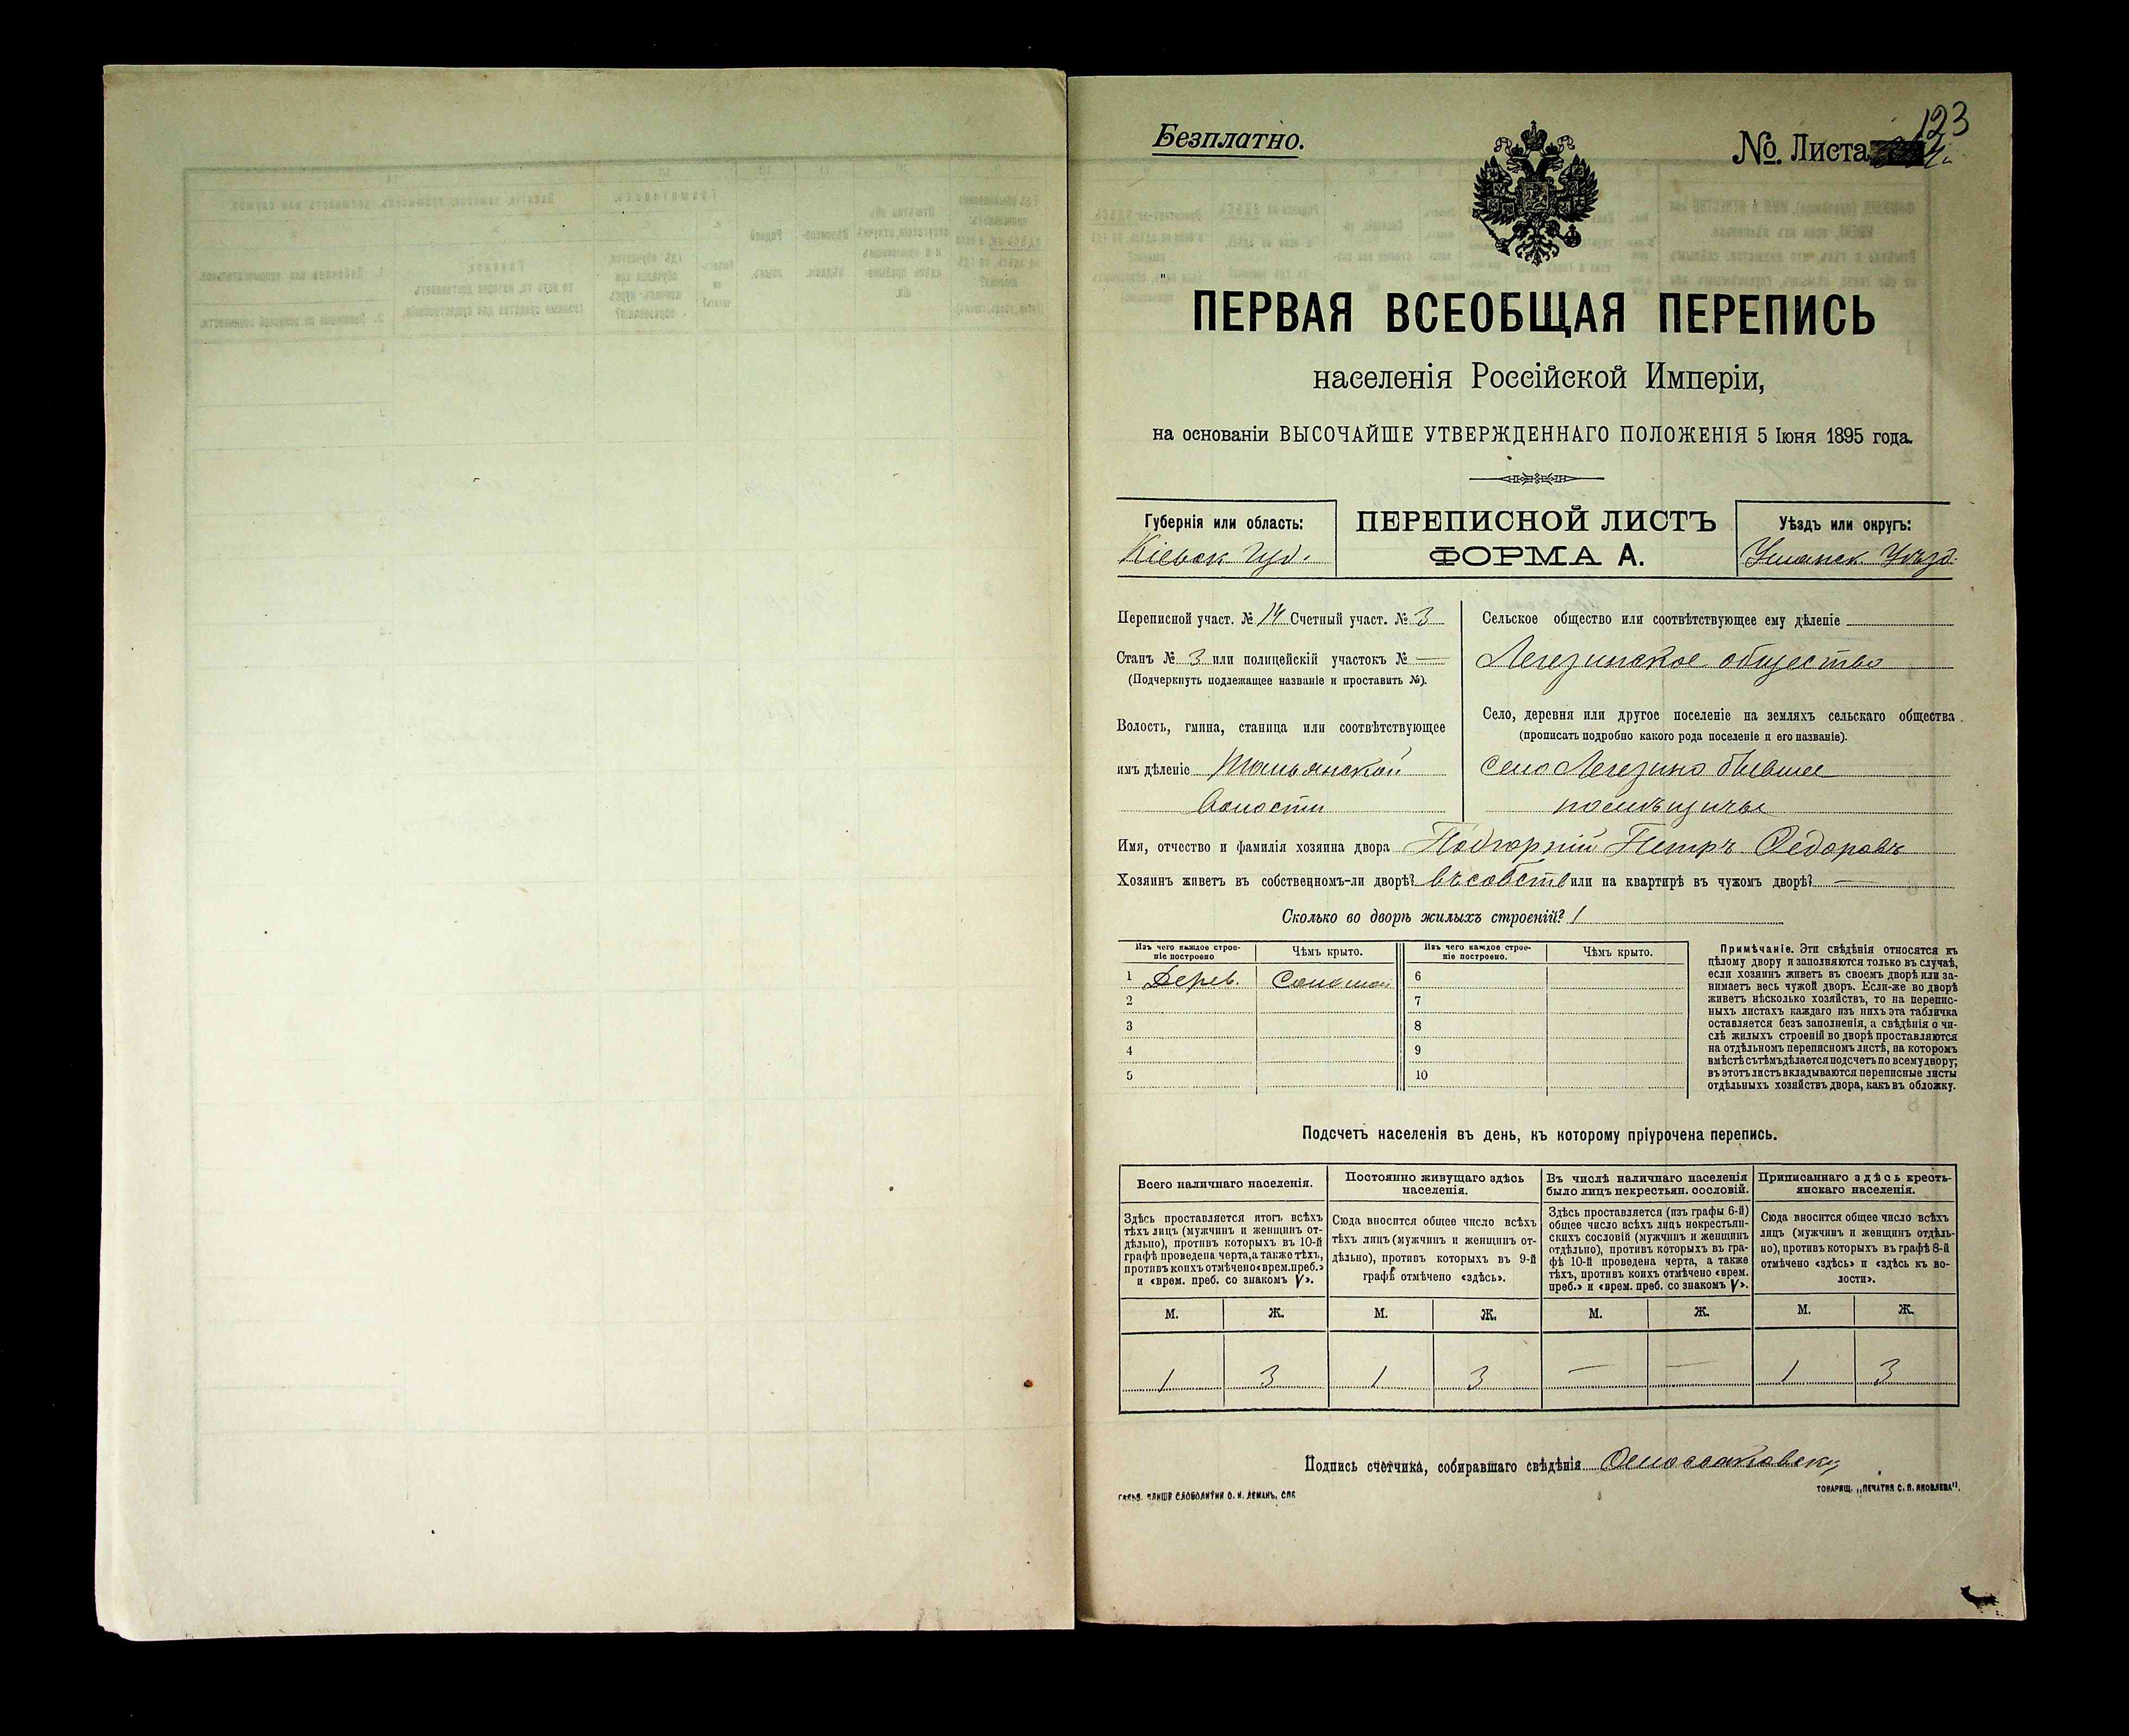 Безплатно.
№ Листа 123
ПЕРВАЯ ВСЕОБЩАЯ ПЕРЕПИСЬ
населенія Россійской Имперіи,
на основаніи ВЫСОЧАЙШЕ УТВЕРЖДЕННАГО ПОЛОЖЕНІЯ 5 Іюня 1895 года.
Губернія или область:
Кіевск. Губ.
ПЕРЕПИСНОЙ ЛИСТЪ
ФОРМА А.
Уѣздъ или округъ:
Уманск. Уѣзд.
Переписной участ. № 14 Счетный участ. № 3
Станъ № 3 или полицейскій участокъ № —
(Подчеркнуть подлежащее названіе и проставить №).
Волость, гмина, станица или соотвѣтствующее
имъ дѣленіе Тальянской
Волости
Сельское общество или соотвѣтствующее ему дѣленіе
Легезинское общество
Село, деревня или другое поселеніе на земляхъ сельскаго общества
(прописать подробно какого рода поселеніе и его названіе).
Село Легезино бывшее
помѣщичье
Имя, отчество и фамилія хозяина двора Подгорній Петръ Федоровъ
Хозяинъ живетъ въ собственномъ-ли дворѣ? въ собств или на квартирѣ въ чужомъ дворѣ? —
Сколько во дворѣ жилыхъ строеній? 1
Изъ чего каждое строе-
ніе построено
Чѣмъ крыто.
Изъ чего каждое строе-
ніе построено.
Чѣмъ крыто.
1 Дерев. Соломой 6
2 7
3 8
4 9
5 10
Примѣчаніе. Эти свѣдѣнія относятся къ
цѣлому двору и заполняются только въ случаѣ,
если хозяинъ живетъ въ своемъ дворѣ или за-
нимаетъ весь чужой дворъ. Если-же во дворѣ
живетъ нѣсколько хозяйствъ, то на перепис-
ныхъ листахъ каждаго изъ нихъ эта табличка
оставляется безъ заполненія, а свѣдѣнія о чи-
слѣ жилыхъ строеній во дворѣ проставляются
на отдѣльномъ переписномъ листѣ, на которомъ
вмѣстѣ съ тѣмъ дѣлается подсчетъ по всему двору;
въ этотъ листъ вкладываются переписные листы
отдѣльныхъ хозяйствъ двора, какъ въ обложку.
Подсчетъ населенія въ день, къ которому пріурочена перепись.
Всего наличнаго населенія.
Здѣсь проставляется итогъ всѣхъ
тѣхъ лицъ (мужчинъ и женщинъ от-
дѣльно), противъ которыхъ въ 10-й
графѣ проведена черта, а также тѣхъ,
противъ коихъ отмѣчено «врем. преб.»
и «врем. преб. со знакомъ V».
Постоянно живущаго здѣсь
населенія.
Сюда вносится общее число всѣхъ
тѣхъ лицъ (мужчинъ и женщинъ от-
дѣльно), противъ которыхъ въ 9-й
графѣ отмѣчено «здѣсь».
Въ числѣ наличнаго населенія
было лицъ некрестьян. сословій.
Здѣсь проставляется (изъ графы 6-й)
общее число всѣхъ лицъ некрестьян-
скихъ сословій (мужчинъ и женщинъ
отдѣльно), противъ которыхъ въ гра-
фѣ 10-й проведена черта, а также
тѣхъ, противъ коихъ отмѣчено «врем.
преб.» и «врем. преб. со знакомъ V».
Приписаннаго здѣсь кресть-
янскаго населенія.
Сюда вносится общее число всѣхъ
лицъ (мужчинъ и женщинъ отдѣль-
но), противъ которыхъ въ графѣ 8-й
отмѣчено «здѣсь» и «здѣсь къ во-
лости».
М. Ж. М. Ж. М. Ж. М. Ж.
1 3 1 3 — — 1 3
Подпись счетчика, собиравшаго свѣдѣнія
ТОВАРИЩ. „ПЕЧАТНЯ С. П. ЯКОВЛЕВА".